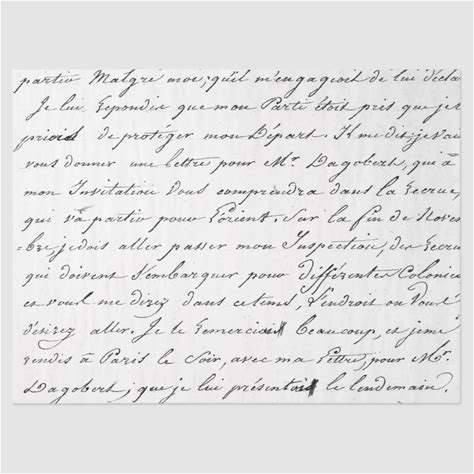 partir Malgré moi; qu'il m'engageoit de lui décla
Je lui Repondis que mon Parti étoit pris que je
priois de protéger mon Départ. Il me dit; je vai
vous donner une lettre pour Mr. Dagobert, qui à
mon Invitation Vous comprendra dans la Recrue,
qui va partir pour l'Orient. Sur la fin de Novem
=bre, je dois aller passer mon Inspection, des Recru
qui doivent S'embarquer pour différentes Colonies
et vous me direz dans ce tems, l'endroit ou Vous
désirez aller. Je le Remerciai beaucoup, et je me
rendis à Paris le Soir, avec ma Lettre, pour Mr.
Dagobert; que je lui présentai le lendemain.